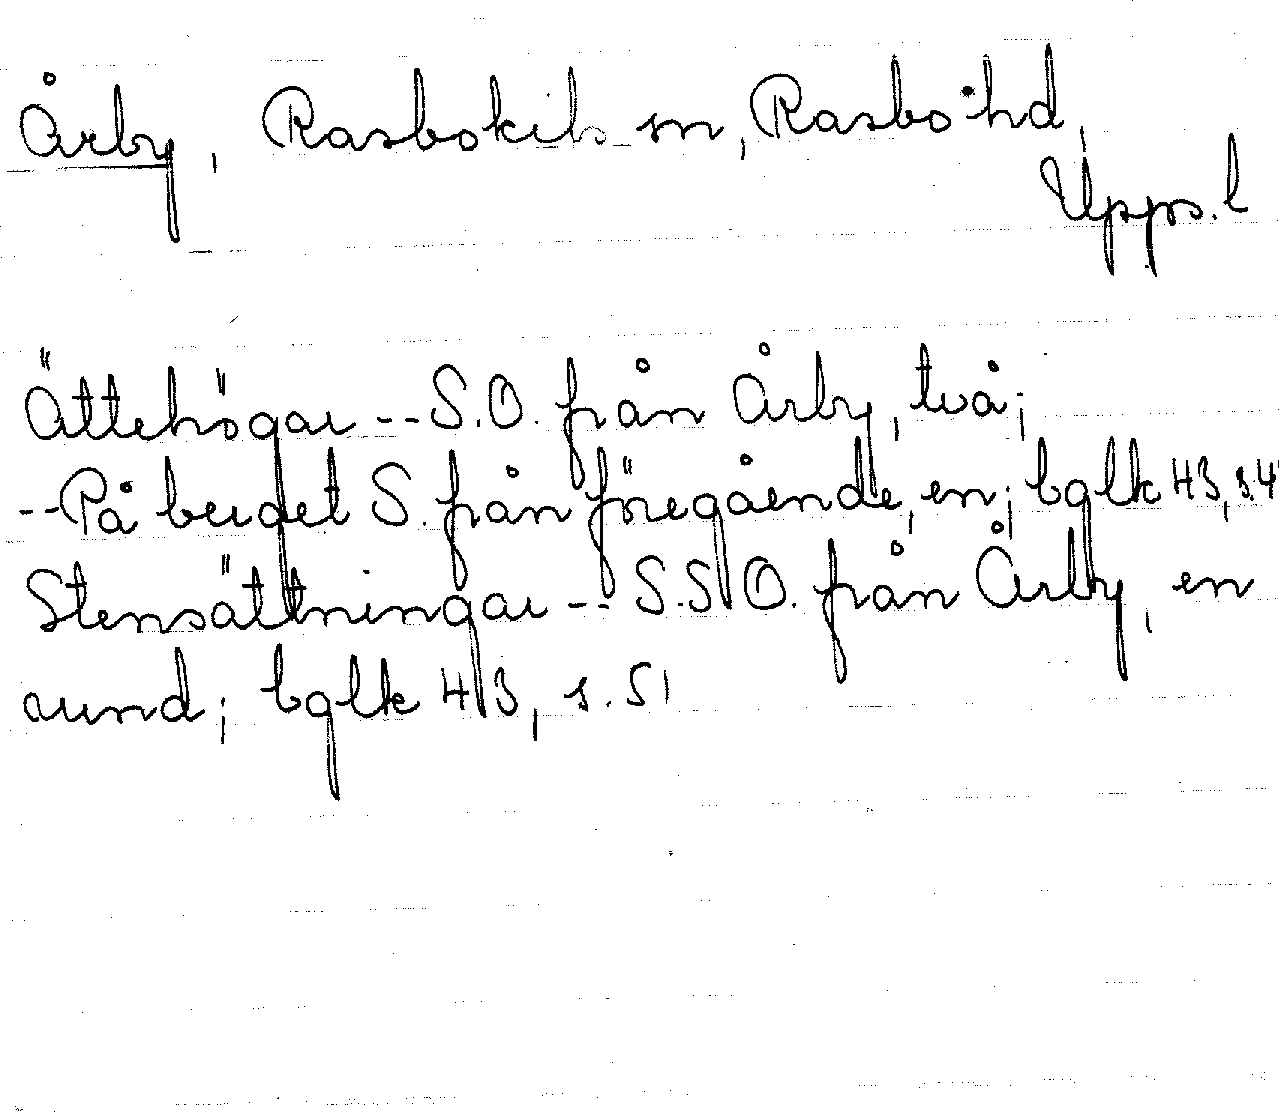 Årby, Rasbokils sn, Rasbo hd,
Upps. l
Ättehögar -- S.O. från Årby, två;
-- På berget S. från föregående, en; bglk 43, s.4
Stensättningar -- S.S.O. från Årby, en
rund; bglk 43, s. 51